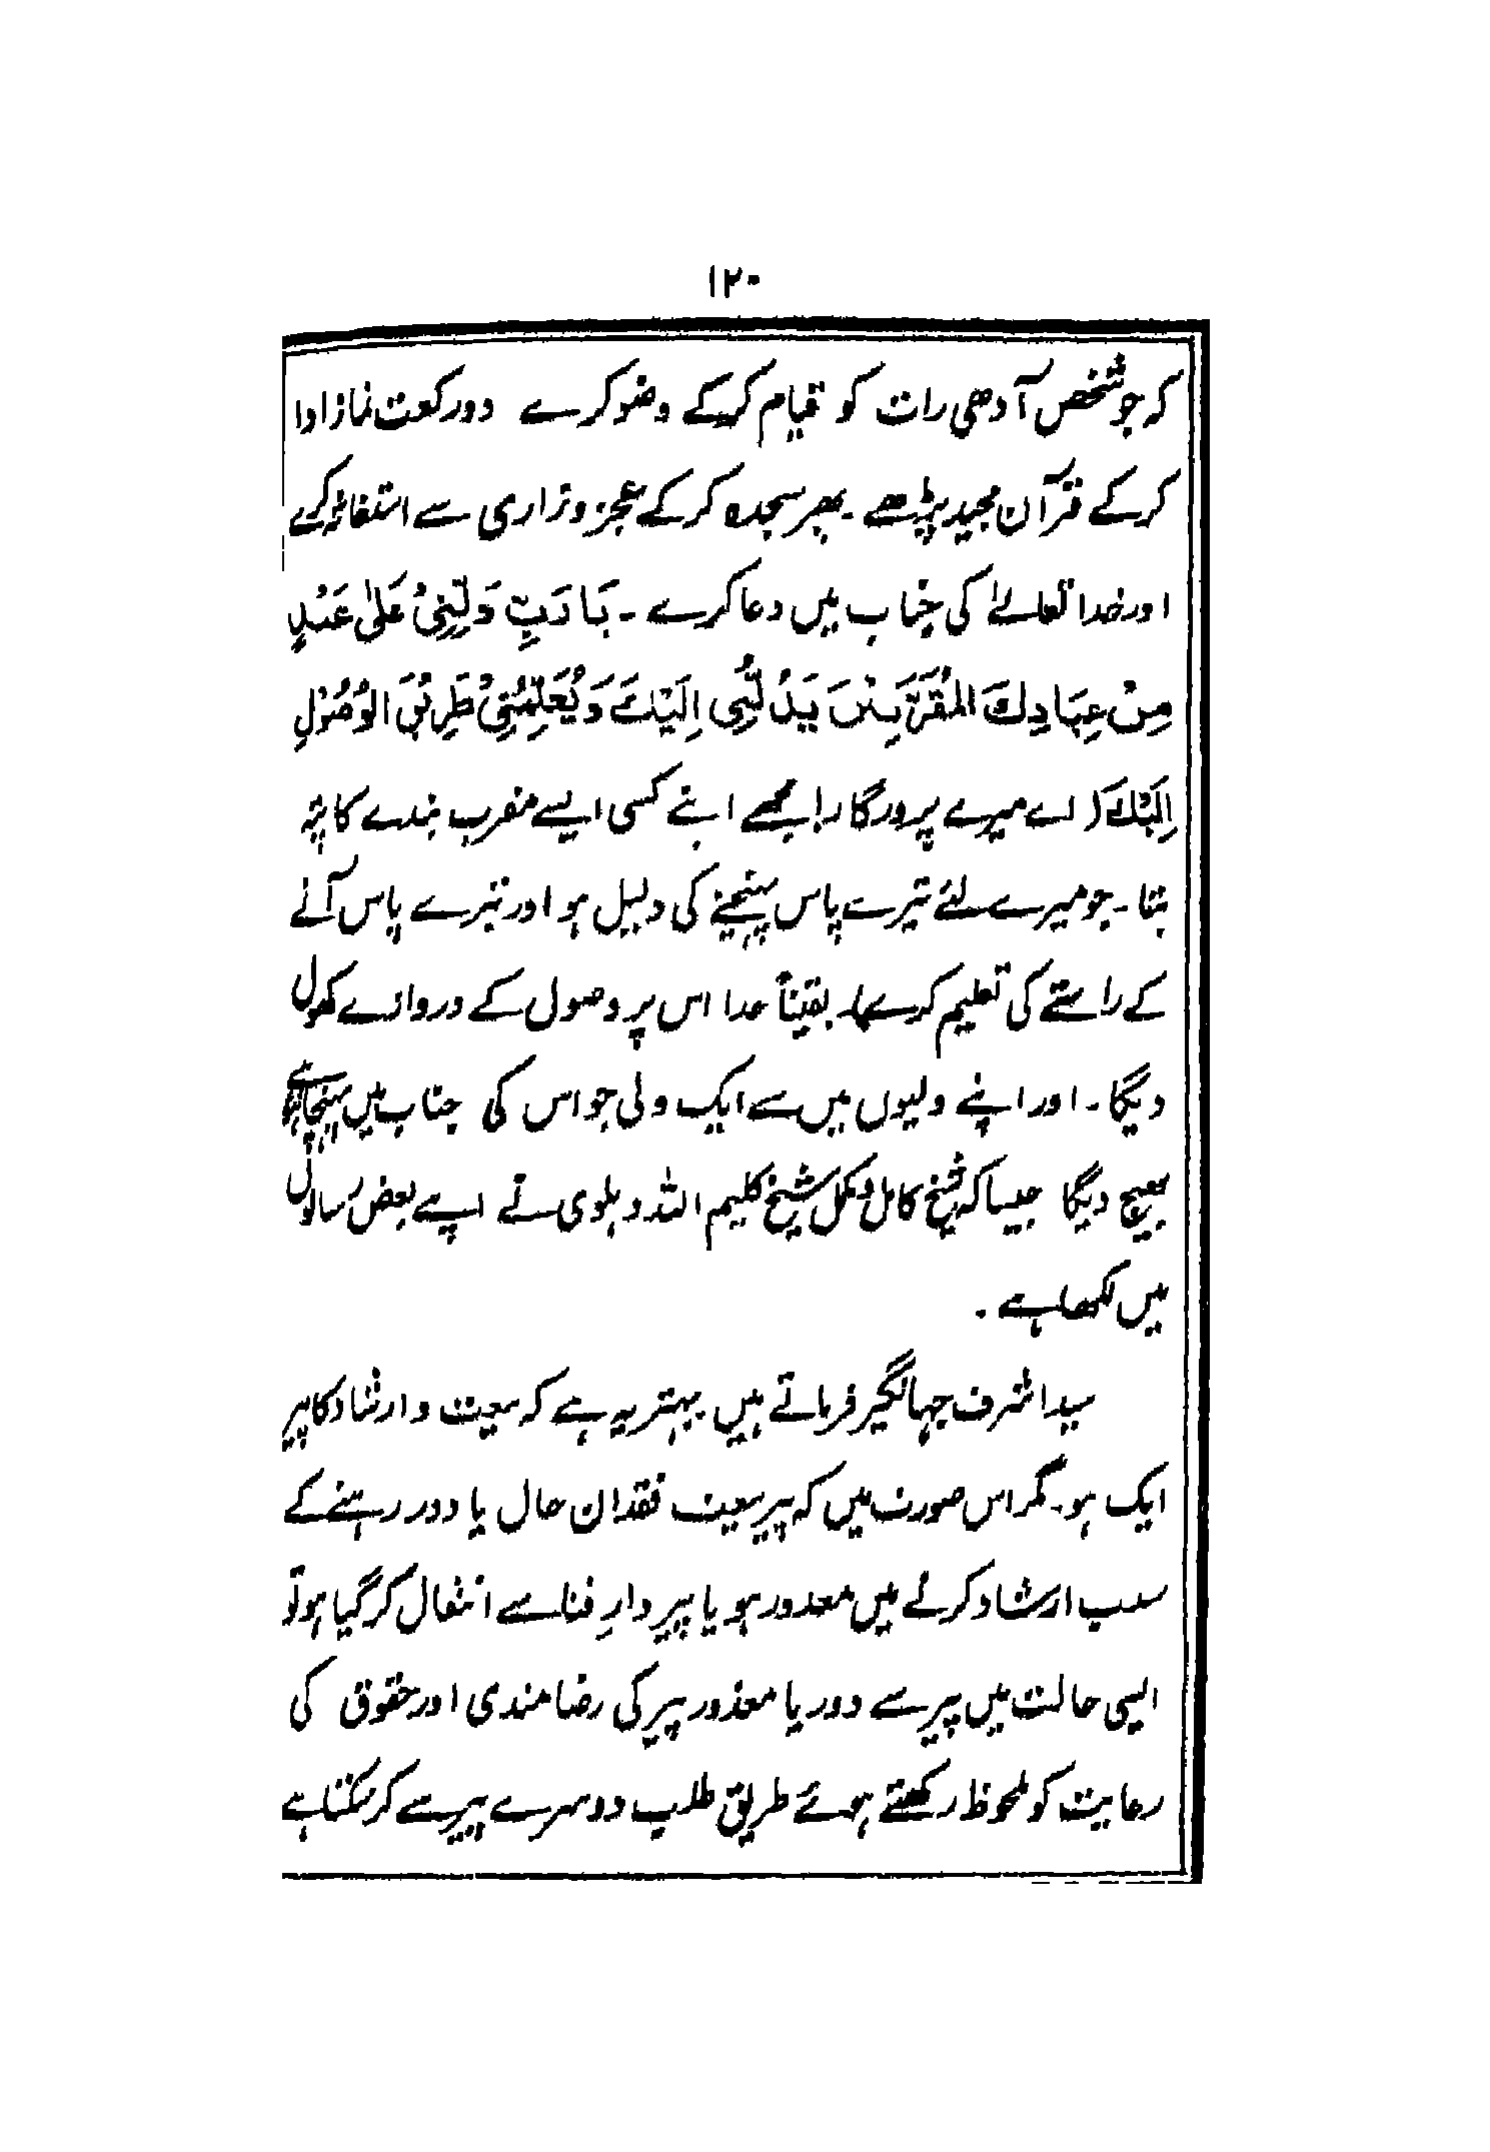 ۱۲۰
کہ جو شخص آدھی رات کو قیام کرکے وضو کرے دو رکعت نماز ادا
کرکے قرآن مجید پڑھے۔ پھر سجدہ کرکے عجز و زاری سے استغفار کرے
اور خدا تعالےٰ کی جناب میں دعا کرے۔ یَا رَبِّ دَلِّنِیْ عَلیٰ عَبْدٍ
مِنْ عِبَادِكَ الْمُقَرَّبِیْنَ یَدُلُّنِی اِلَیْكَ وَیُعَلِّمُنِیْ طَرِیْقَ الْوُصُوْلِ
اِلَیْكَ (اے میرے پرورگار! مجھے اپنے کسی ایسے مقرب بندے کا پتہ
بتا۔ جو میرے لئے تیرے پاس پہنچنے کی دلیل ہو اور تیرے پاس آنے
کے راستے کی تعلیم کرے)۔ یقیناً خدا اس پر وصول کے دروازے کھول
دیگا۔ اور اپنے ولیوں میں سے ایک ولی جو اس کی جناب میں پہنچا ہے
بھیج دیگا جیسا کہ شیخ کامل و مکمل شیخ کلیم اللہ دہلوی نے اپنے بعض رسالوں
میں لکھا ہے۔
سید اشرف جہانگیر فرماتے ہیں بہتر یہ ہے کہ بیعت و ارشاد کا پیر
ایک ہو۔ مگر اس صورت میں کہ پیر بیعت فقدان حال یا دور رہنے کے
سبب ارشاد کرنے میں معذور ہو یا پیر دارِ فنا سے انتقال کر گیا ہو تو
ایسی حالت میں پیر سے دور یا معذور پیر کی رضامندی اور حقوق کی
رعایت کو ملحوظ رکھتے ہوئے طریق طلب دوسرے پیر سے کر سکتا ہے